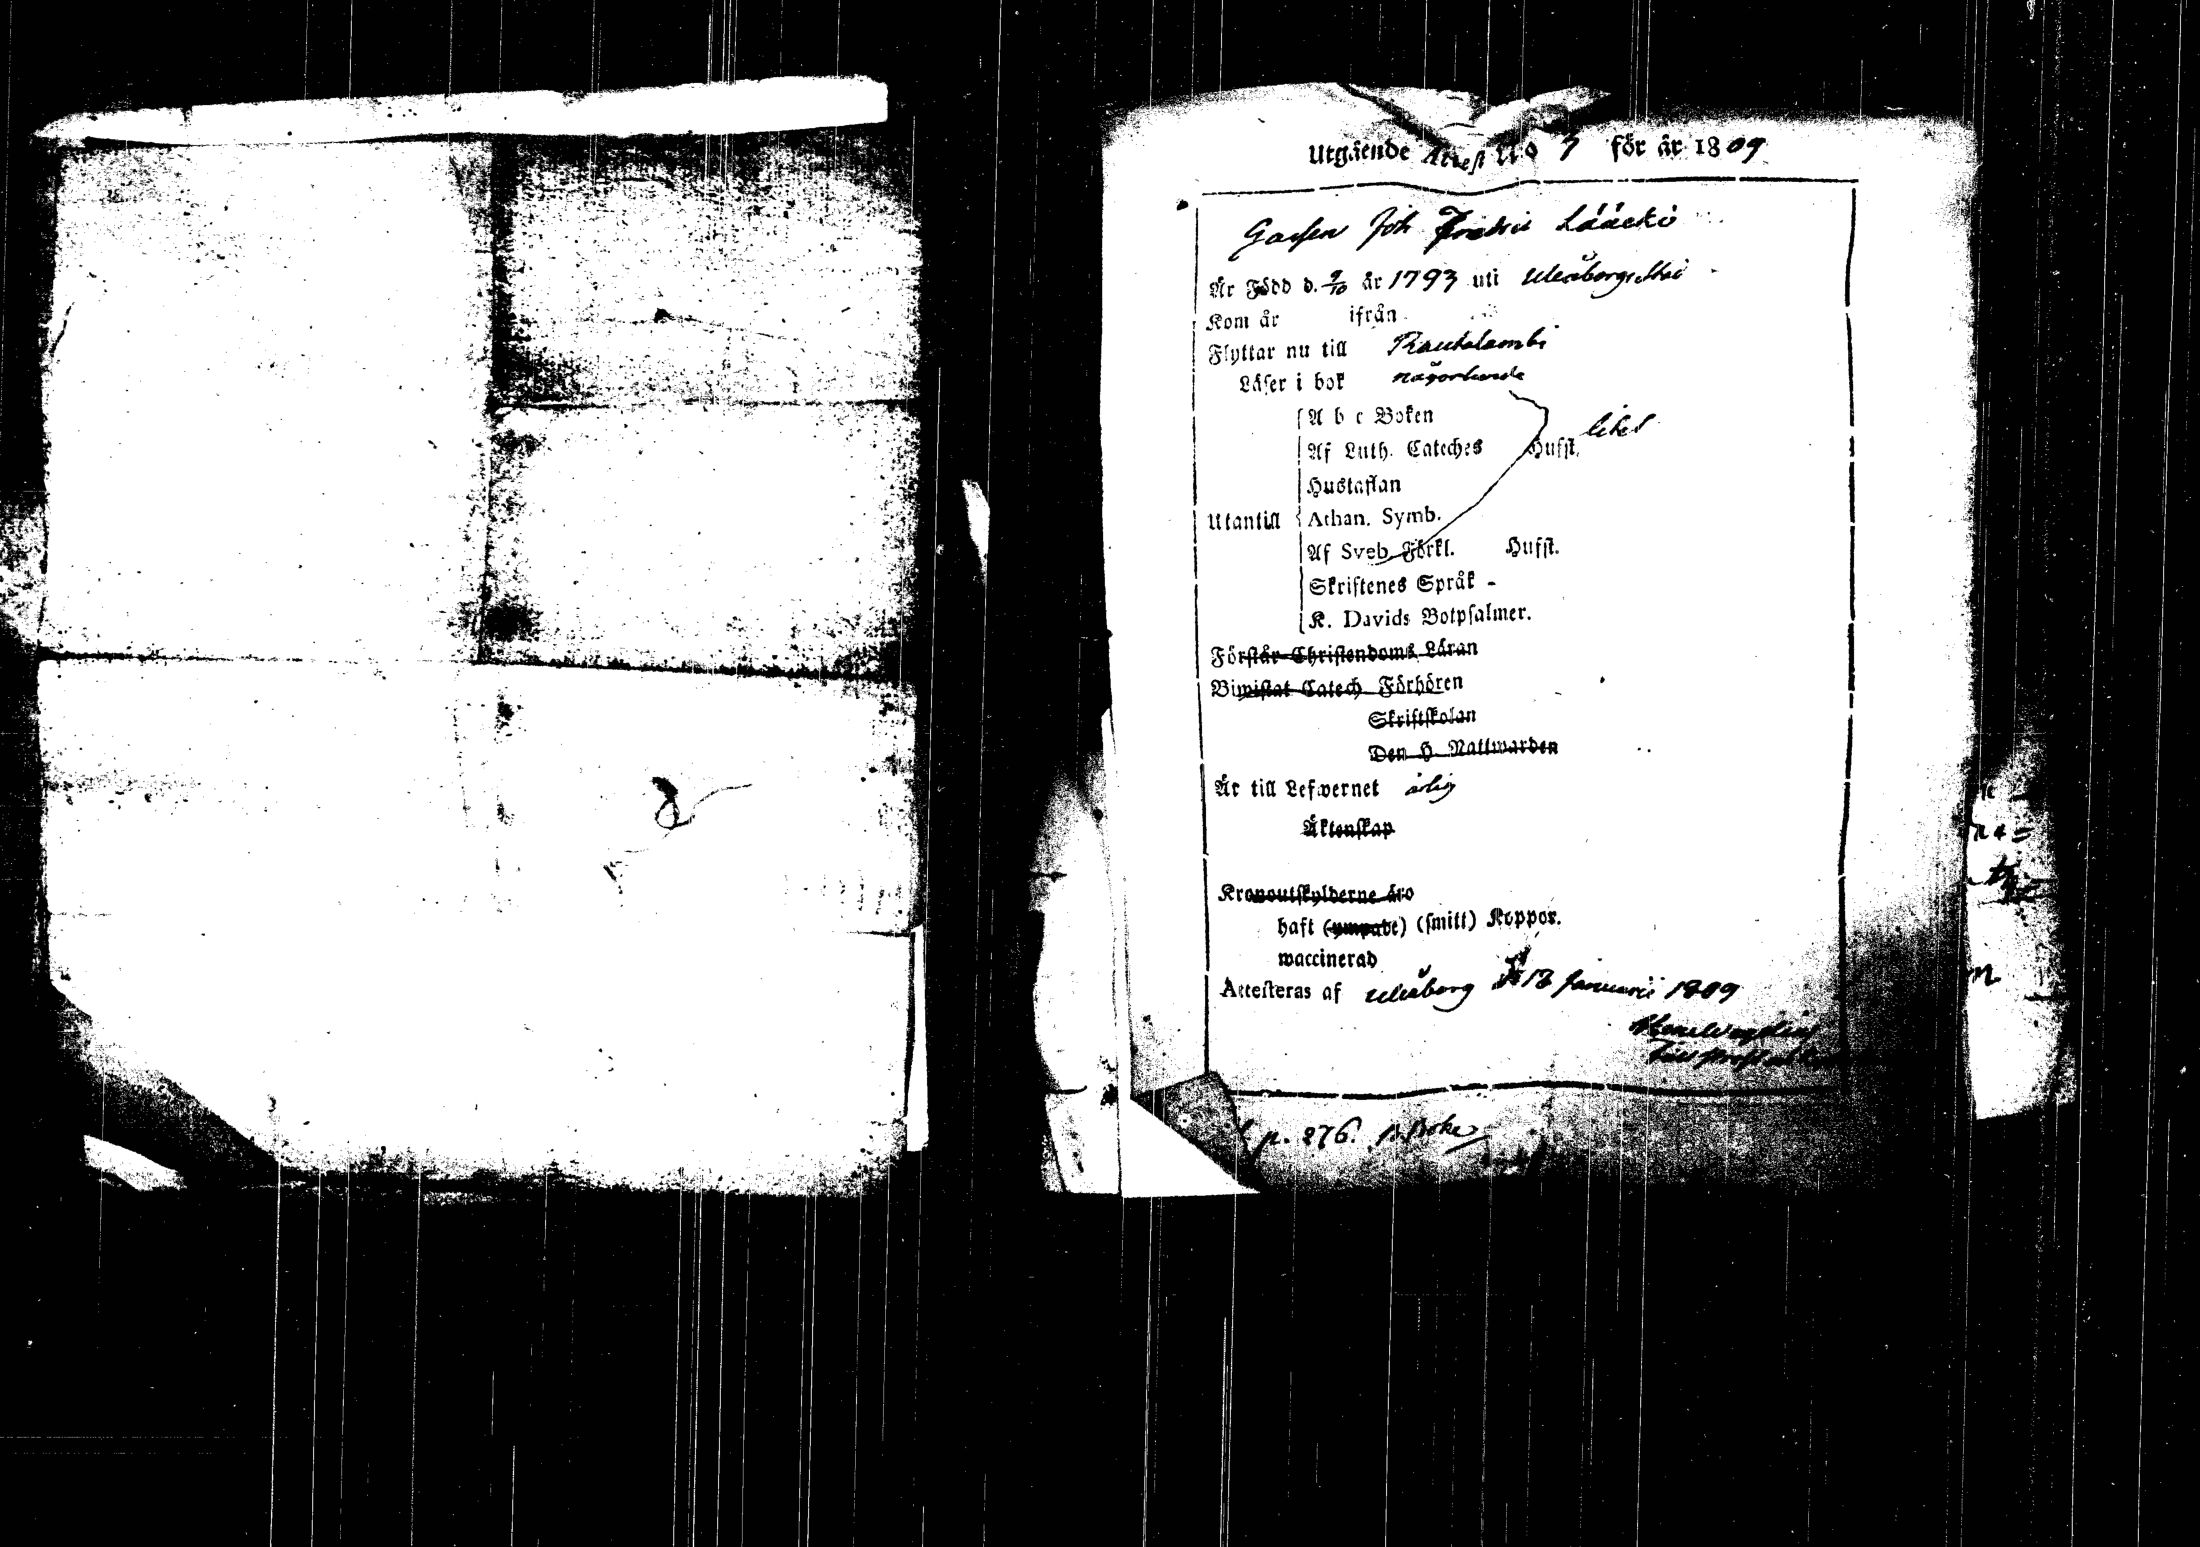 Utgående Attest No 7 för år 1809
Gossen Joh Fredric Lääcki
Är Född d. 9/10 år 1793 uti Uleåborgs
Kom år ifrån
Flyttar nu till Rautalambi
Läser i bok någorlunda
A b c Boken
Af Luth. Cateches Hufst. litet
Hustaflan
Utantill Athan. Symb.
Af Sveb. Förkl. Hufst.
Skriftenes Språk -
K. Davids Botpsalmer.
Förstår Christendoms Läran
Biwistat Catech. Förhören
Skriftskolan
Den H. Nattwarden
Är till Lefwernet ärlig
Äktenskap
Kronoutskylderne äro
haft (ympade) (smitt) Koppor.
waccinerad
Attesteras af Uleåborg d 13 Januarii 1809
p. 276.